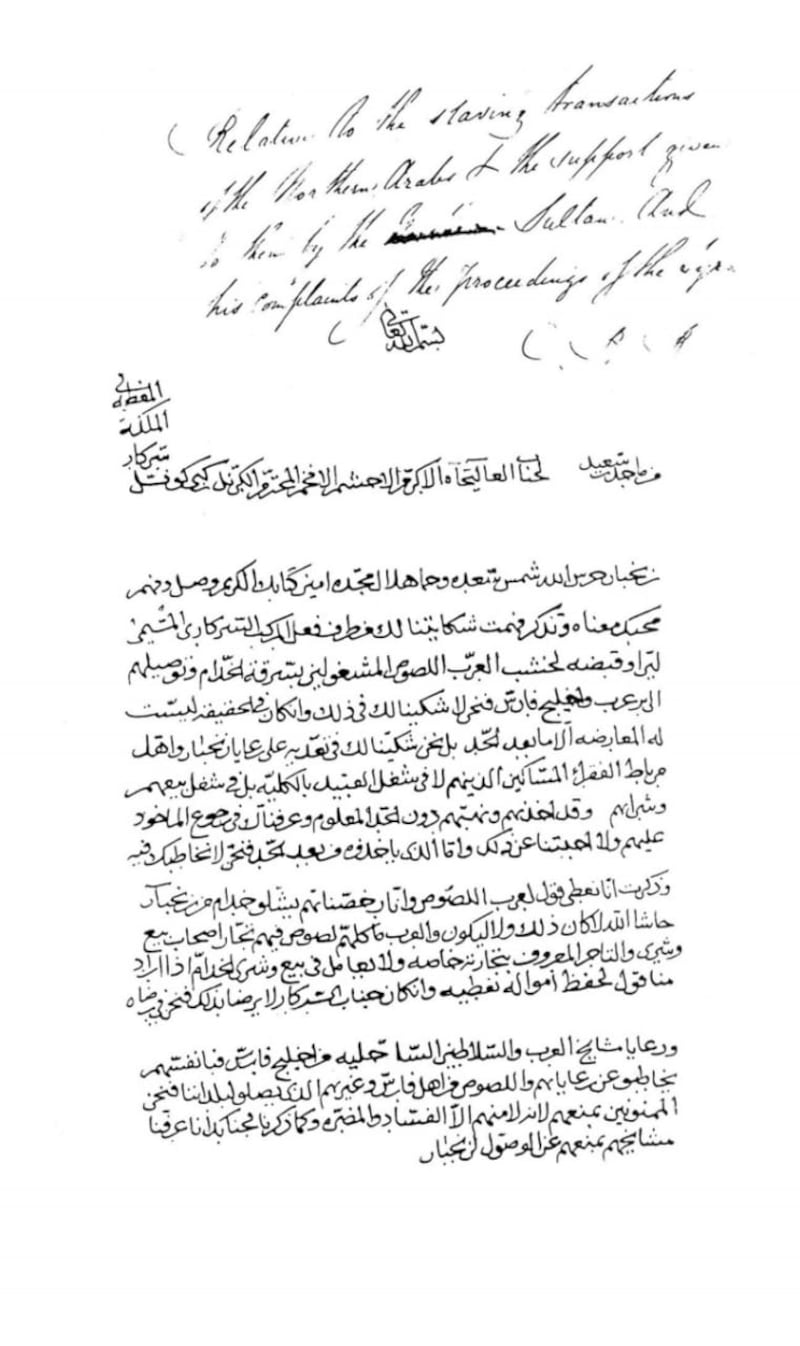 ( Relative to the slaving transactions
of the Northern Arabs & the support given
to them by the Sultan. And
his complaints of the proceedings of the
بسم الله تعالى
المعظمه
الملكة
سركار
من ماجد بن سعيد لجناب العاليجاه الاكرم الاحشم الافخم المحترم الكرنل كونسل
زنجبار حرس الله شمس سعده وحماها لمجده امين كتابك الكريم وصل وفهم
محبك معناه وتذكر فهمت شكايتنا لك من طرف فعل المركب السركاري المسمى
وقبضه لخشب العرب اللصوص المشغولين بسرقة الخدام وتوصيلهم
الى بر عرب وخليج فارس فنحن لا شكينا لك في ذلك وان كان في الحقيقه ليست
له المعارضه الا ما بعد الحد بل نحن شكينا لك في تعديه على رعايا زنجبار واهل
مرباط الفقراء المساكين الذين هم لا في شغل العبيد بالكليه بل في شغل بيعهم
وشراهم وقد اخذهم ونهبهم دون الحد المعلوم وعرفناك في رجوع الماخوذ
عليهم ولا اجبتنا عن ذلك واما الذي ياخذه من بعد الحد فنحن لا نخاطبك فيه
وذكرت انا نعطي قول لعرب اللصوص وانا رخصناهم يشلو خدام من زنجبار
حاشا الله لا كان ذلك ولا اليكون والعرب ما كلهم لصوص فيهم تجار اصحاب بيع
وشرى والتاجر المعروف بتجارته خاصه ولا يعامل في بيع وشرى الخدام اذا اراد
منا قول لحفظ امواله نعطيه وان كان جناب السركار لا يرضا بذلك فنحن في رضاه
ورعايا مشايخ العرب والسلاطين الساحليه من خليج فارس فبانفسهم
يخاطبو عن رعاياهم واللصوص من اهل فارس وغيرهم الذي يصلو لبلداننا فنحن
الممنونين بمنعهم لانه لا منهم الا الفساد والمضره وكما ذكرنا لجنابك انا عرفنا
مشايخهم بمنعهم عن الوصول لزنجبار